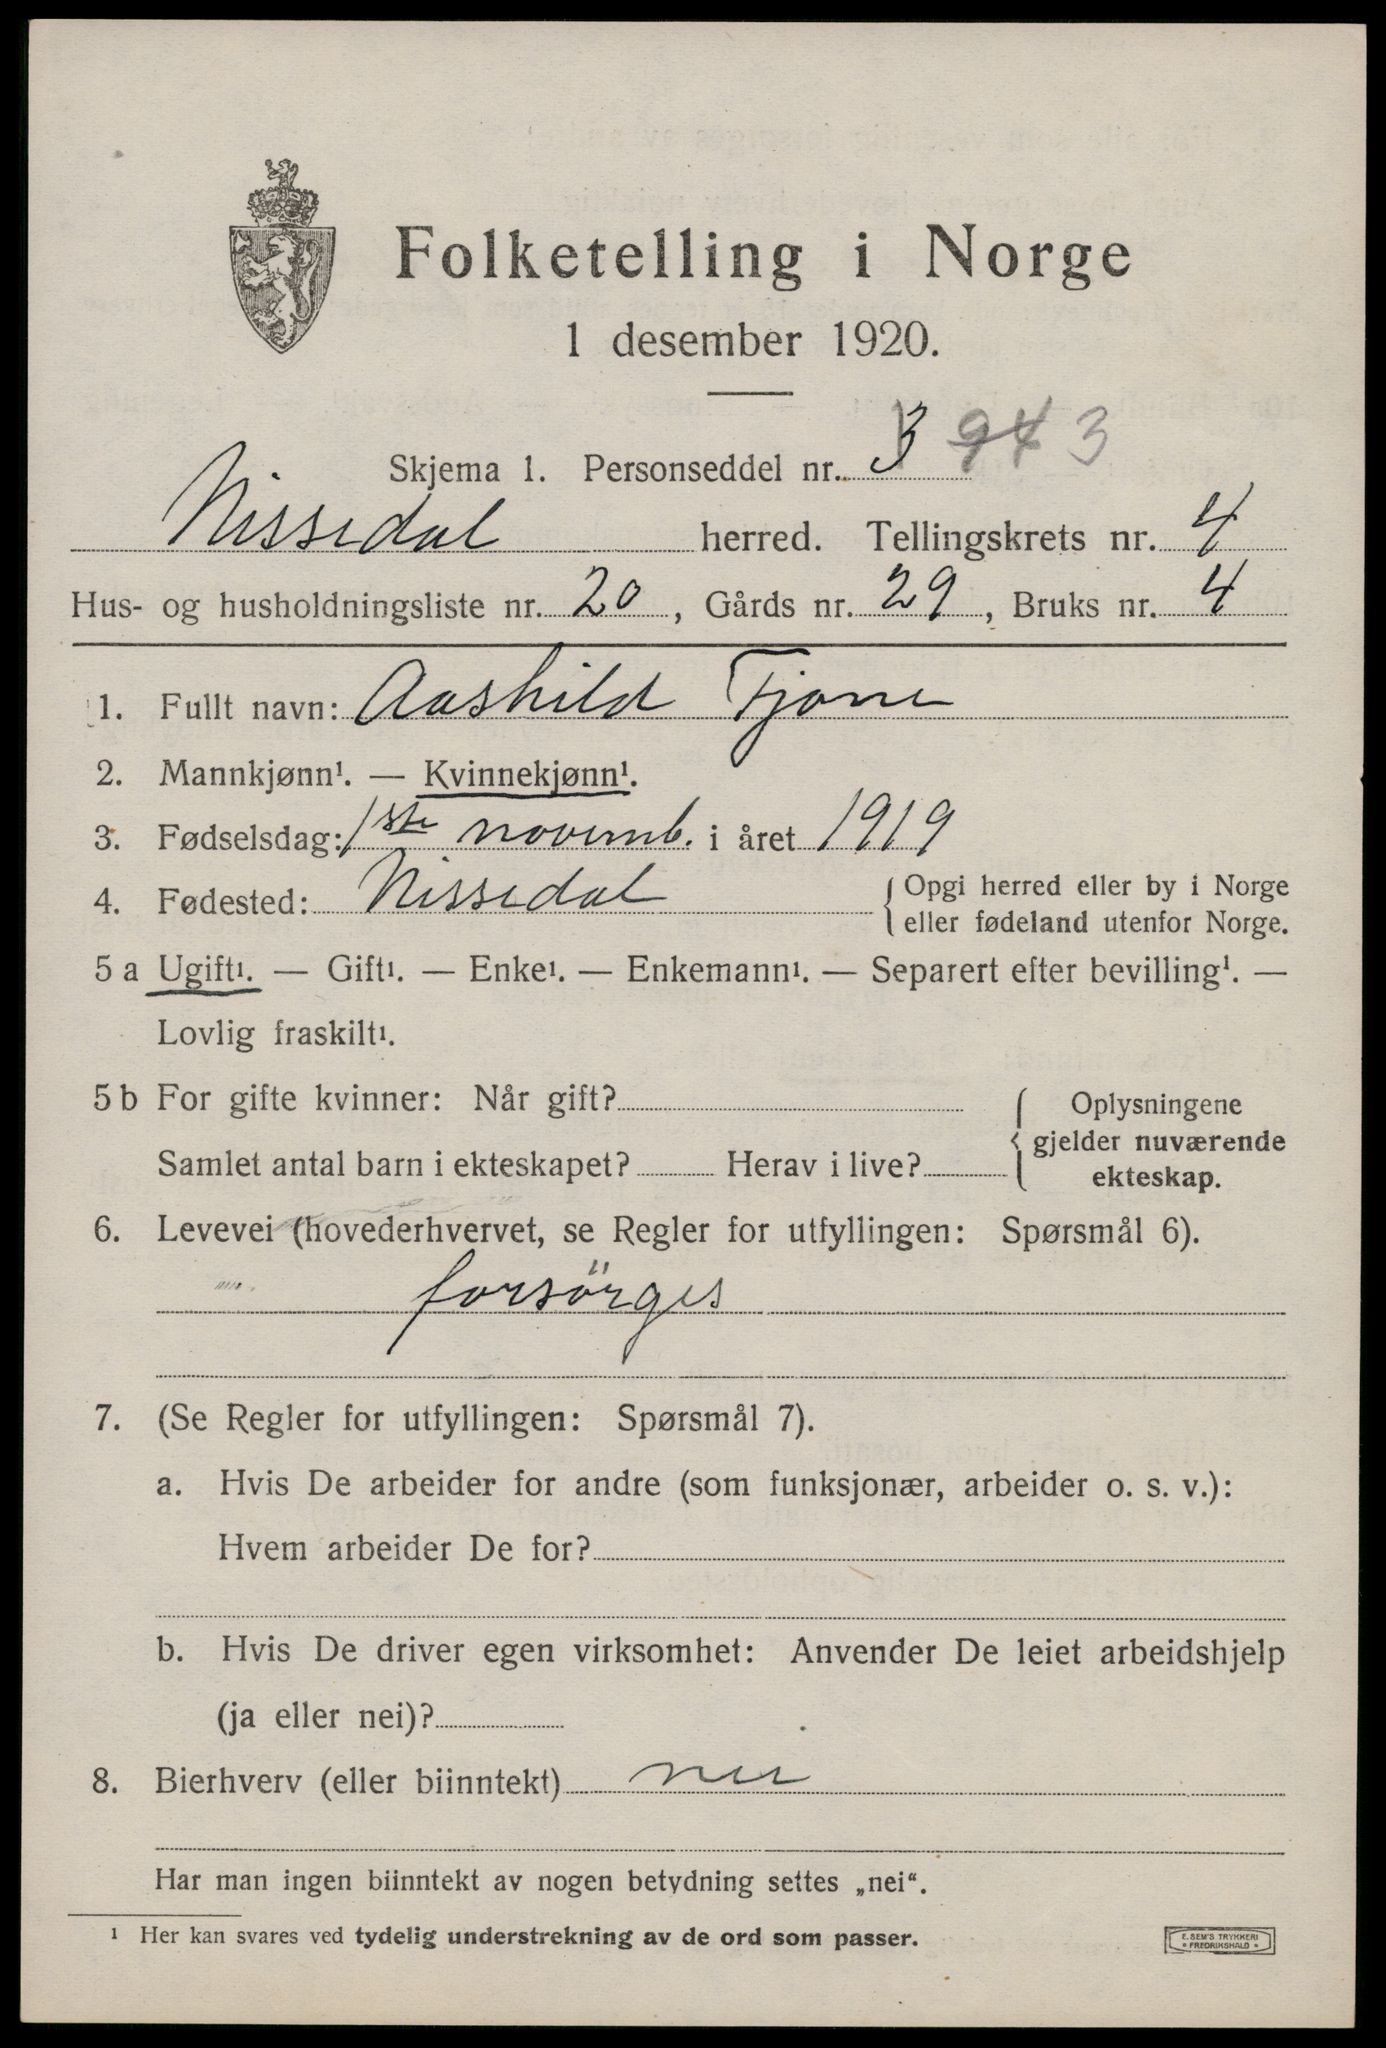 Folketelling i Norge
1 desember 1920.
Skjema 1. Personseddel nr. 3 943
Nissedal herred. Tellingskrets nr. 4
Hus- og husholdningsliste nr. 20, Gårds nr. 29, Bruks nr. 4
1. Fullt navn: Aashild Tjone
2. Mannkjønn¹. — Kvinnekjønn¹.
3. Fødselsdag: 1ste novemb. i året 1919
4. Fødested: Nissedal { Opgi herred eller by i Norge
eller fødeland utenfor Norge.
5 a Ugift¹. — Gift¹. — Enke¹. — Enkemann¹. — Separert efter bevilling¹. —
Lovlig fraskilt¹.
5 b For gifte kvinner: Når gift? { Oplysningene
gjelder nuværende
Samlet antal barn i ekteskapet? Herav i live?
ekteskap.
6. Levevei (hovederhvervet, se Regler for utfyllingen: Spørsmål 6).
forsörges
7. (Se Regler for utfyllingen: Spørsmål 7).
a. Hvis De arbeider for andre (som funksjonær, arbeider o. s. v.):
Hvem arbeider De for?
b. Hvis De driver egen virksomhet: Anvender De leiet arbeidshjelp
(ja eller nei)?
8. Bierhverv (eller biinntekt) nei
Har man ingen biinntekt av nogen betydning settes „nei“.
¹ Her kan svares ved tydelig understrekning av de ord som passer.
E. SEM'S TRYKKERI
• FREDRIKSHALD •